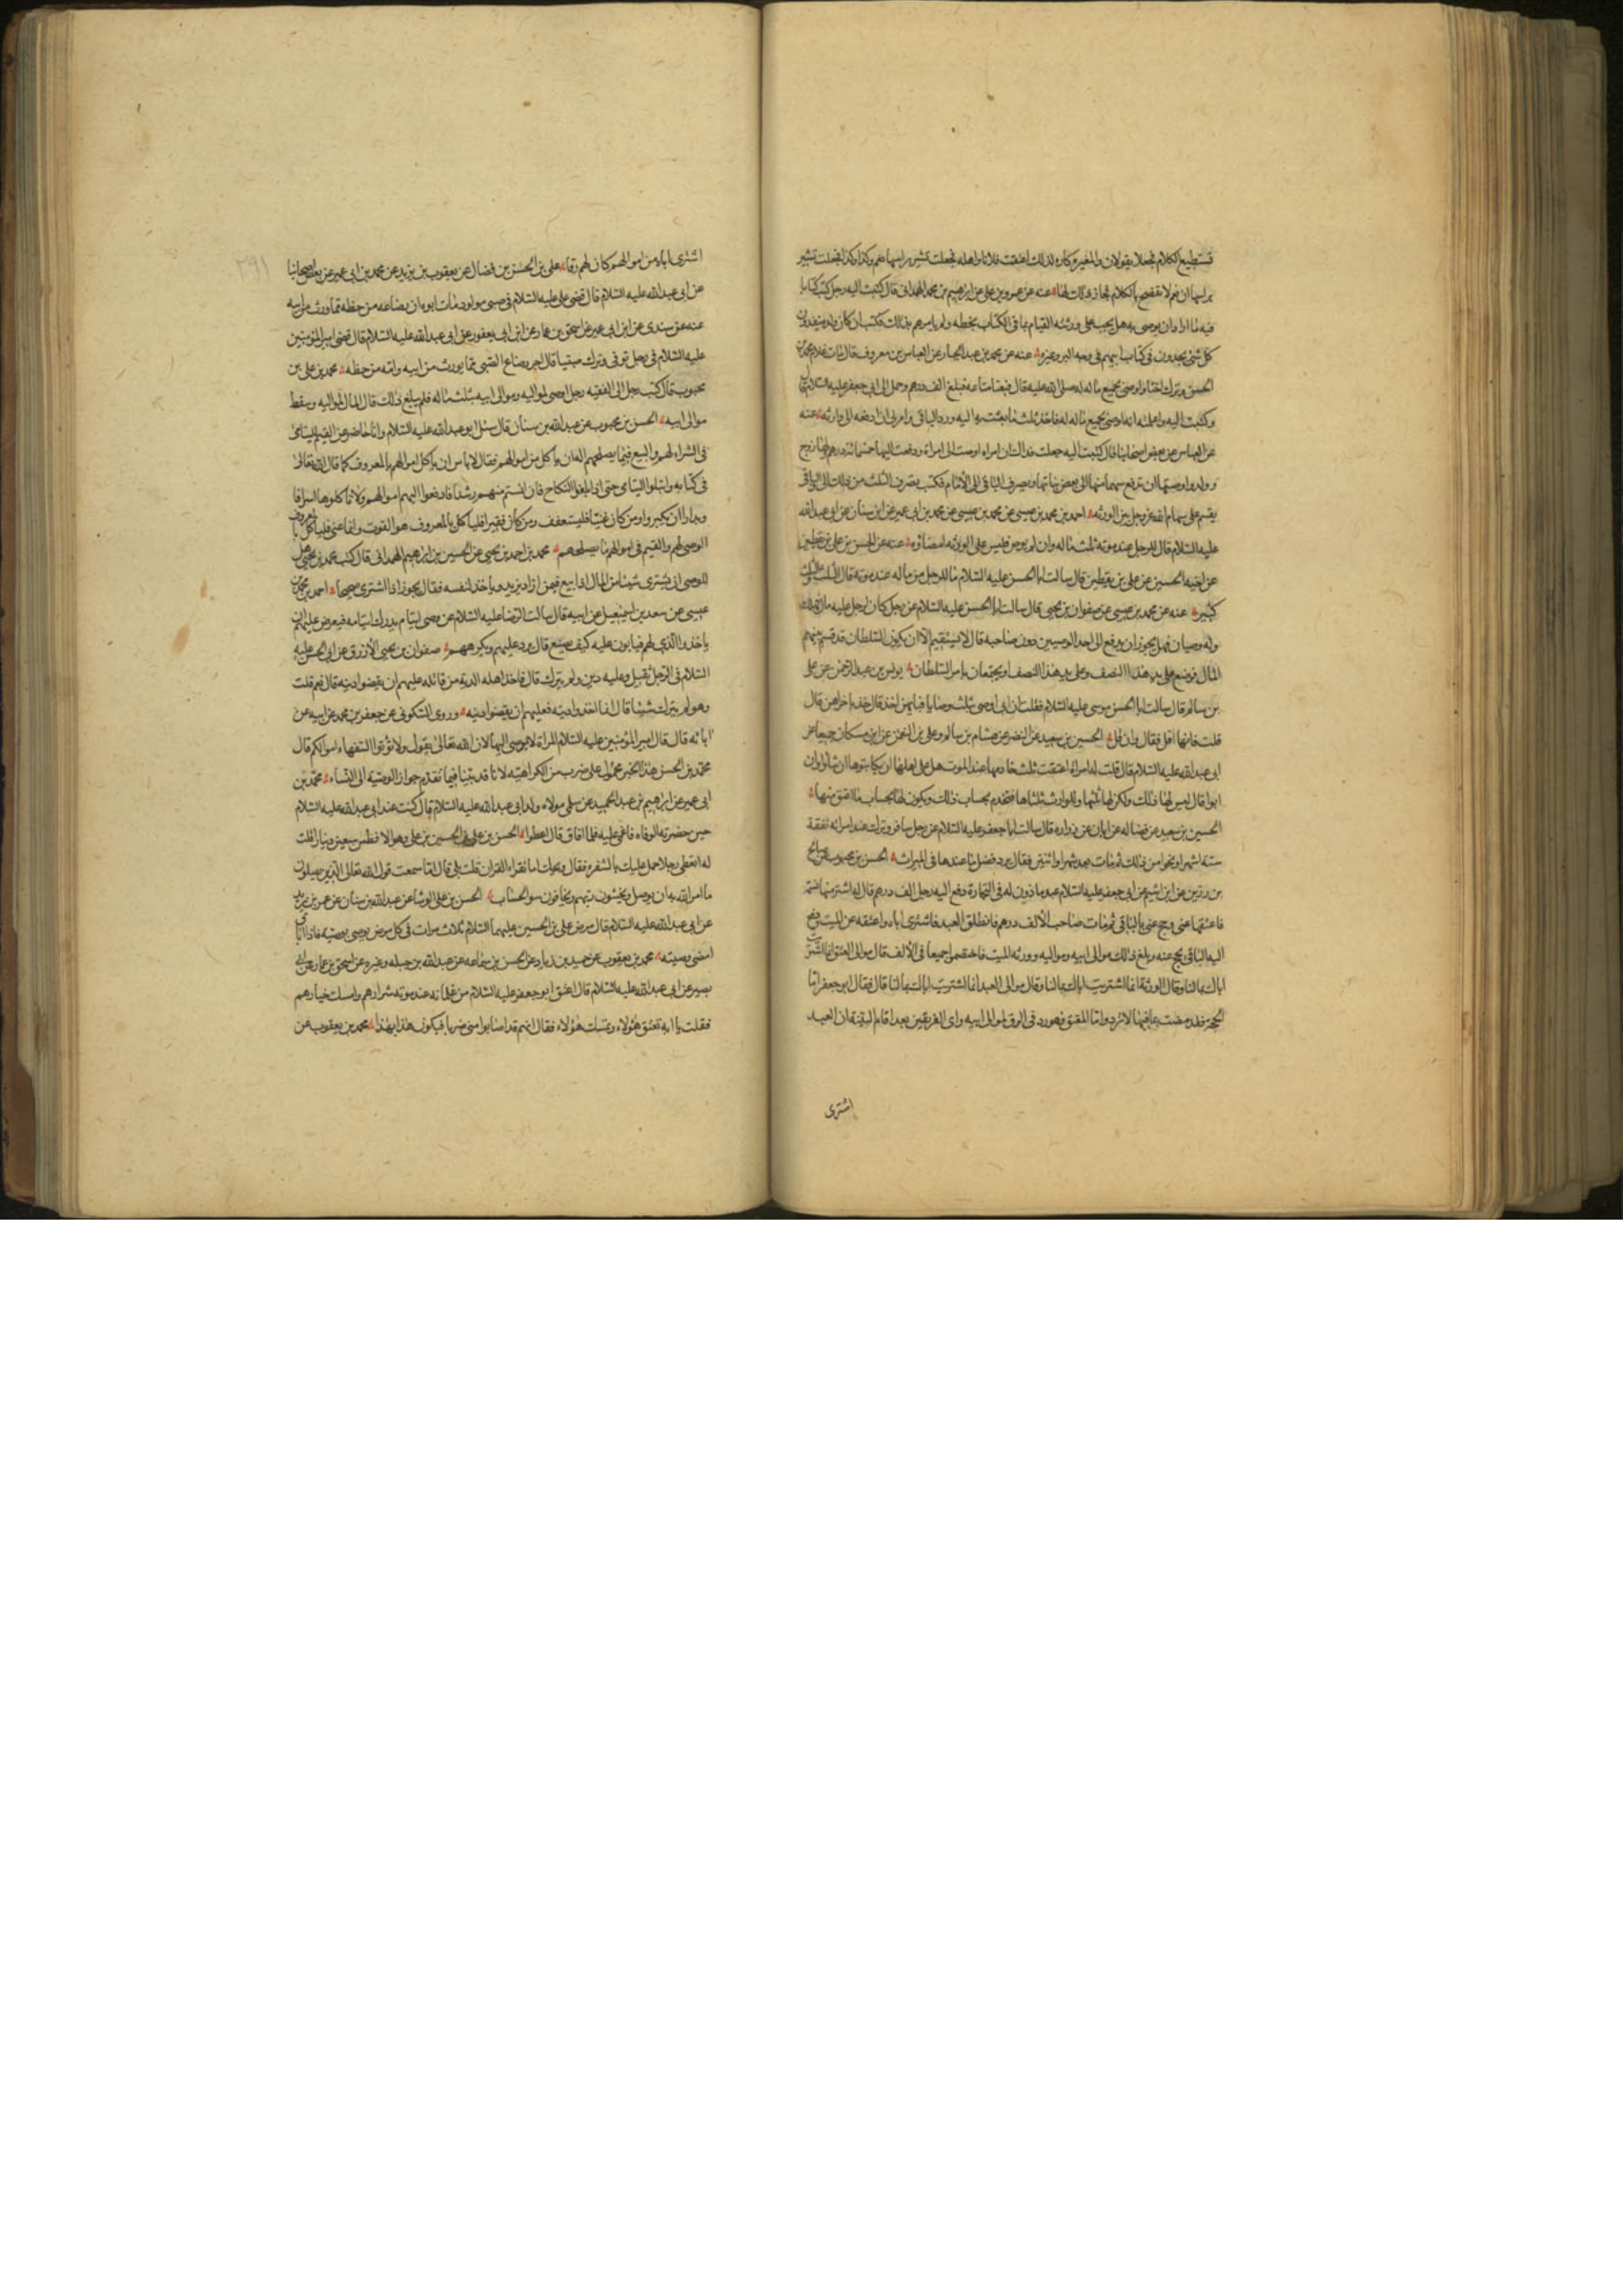 تستطيع الكلام فجعلا يقولان والمغيرة كاره لذلك اعتقت فلانا واهله فجعلت تشير براسها نعم وكذا وكذا فجعلت تشير
براسها ان نعم لا تفصح بالكلام فجاز ذلك لها عنه عن عمرو بن علي عن ابرهيم بن محمد الهمداني قال كتبت اليه رجل كتب كتابا
فيه ما اراد ان يوصى به هل يجب على ورثته القيام بما في الكتاب بخطه ولم يامرهم بذلك فكتب ان كان ولده ينفذون
كل شئ يجدون في كتاب ابيهم في وجه البر وغيره عنه عن محمد بن عبد الجبار عن العباس بن معروف قال مات غلام محمد بن
الحسن وترك اختا واوصى بجميع ماله له صلى الله عليه قال فبعنا متاعه فبلغ الف درهم وحمل الى ابي جعفر عليه السلام قال
وكتبت اليه واعلمته انه اوصى بجميع ماله له فاخذ ثلث ما بعثت به اليه ورد الباقي وامرني ان ادفعه الى وارثه عنه
عن العباس عن بعض اصحابنا قال كتبت اليه جعلت فداك ان امراه اوصت الى امراة ودفعت اليها خمسمائة درهم ولها زوج
وولد واوصتها ان تدفع سهما منها الى بعض بناتها وتصرف الباقي الى الامام فكتب تصرف الثلث من ذلك الى الباقي
يقسم على سهام الله عز وجل بين الورثه احمد بن محمد بن عيسى عن محمد بن عيسى عن محمد بن ابي عمير عن ابن سنان عن ابي عبد الله
عليه السلام قال للرجل عند موته ثلث ماله وان لم يوص فليس على الورثه امضاؤه عنه عن الحسن بن علي بن يقطين
عن اخيه الحسين عن علي بن يقطين قال سالت ابا الحسن عليه السلام ما للرجل من ماله عند موته قال الثلث والثلث
كثير عنه عن محمد بن عيسى عن صفوان بن يحيى قال سالت ابا الحسن عليه السلام عن رجل كان لرجل عليه مال فهلك
وله وصيان فهل يجوز ان يدفع الى احد الوصيين دون صاحبه قال لا يستقيم الا ان يكون السلطان قد قسم بينهم
المال فوضع على يد هذا النصف وعلى يد هذا النصف او يجتمعان بامر السلطان يونس بن عبد الرحمن عن علي
بن سالم قال سالت ابا الحسن موسى عليه السلام فقلت ان ابي اوصى بثلث وصايا فبايهن اخذ قال خذ باخراهن قال
قلت فانها اقل فقال وان قل الحسين بن سعيد عن النضر عن هشام بن سالم وعلي بن النعمن عن ابن مسكان جميعا عن
ابي عبد الله عليه السلام قال قلت له امراة اعتقت ثلث خادمها عند الموت هل على اهلها ان يكاتبوها ان شاؤا وان
ابوا قال ليس لها ذلك ولكن لها ثلثها وللوارث ثلثاها فتخدم بحساب ذلك ويكون لها بحساب ما اعتق منها
الحسين بن سعيد عن فضاله عن ابان عن زراره قال سالت ابا جعفر عليه السلام عن رجل سافر وترك عند امراته نفقة
ستة اشهر او نحوا من ذلك ثم مات بعد شهر او اثنتين فقال يرد فضل ما عندها في الميراث الحسن بن محبوب عن صالح
بن رزين عن ابن اشيم عن ابي جعفر عليه السلام عبد ماذون له في التجارة دفع اليه رجل الف درهم قال له اشتر منها نسمة
فاعتقها عني وحج عني بالباقي ثم مات صاحب الالف درهم فانطلق العبد فاشترى اباه واعتقه عن الميت ودفع
اليه الباقي يحج عنه وبلغ ذلك موالى ابيه ومواليه وورثه الميت فاختصموا جميعا في الالف قال موالى العتق انما اشتريت
اباك بمالنا وقال الورثة انما اشتريت اباك بمالنا وقال موالى العبد انما اشتريت اباك بمالنا قال فقال ابو جعفر اما
الحجة فقد مضت بما فيها لا ترد واما المعتق فهو رد في الرق لموالى ابيه واى الفريقين بعد اقام البينة ان العبد
اشترى
اشترى اباه من اموالهم كان لهم رقا علي بن الحسن بن فضال عن يعقوب بن يزيد عن محمد بن ابي عمير عن بعض اصحابنا
عن ابي عبد الله عليه السلام قال قضى علي عليه السلام في صبي مولود مات ابوه ان رضاعه من حظه مما ورث من ابيه
عنه عن سندى عن ابن ابي عمير عن اسحق بن عمار عن ابن ابي يعفور عن ابي عبد الله عليه السلام قال قضى امير المؤمنين
عليه السلام في رجل توفى وترك صبيا قال اجر رضاع الصبي مما يورث من ابيه وامه من حظه محمد بن علي بن
محبوب قال كتب رجل الى الفقيه رجل اوصى لمواليه وموالى ابيه بثلث ماله فلم يبلغ ذلك قال المال لمواليه وسقط
موالى ابيه الحسن بن محبوب عن عبد الله بن سنان قال سئل ابو عبد الله عليه السلام وانا حاضر عن القيم لليتامى
في الشراء لهم والبيع فيما يصلحهم اله ان ياكل من اموالهم فقال لا باس ان ياكل من اموالهم بالمعروف كما قال الله تعالى
في كتابه وابتلوا اليتامى حتى اذا بلغوا النكاح فان انستم منهم رشدا فادفعوا اليهم اموالهم ولا تاكلوها اسرافا
وبدارا ان يكبروا ومن كان غنيا فليستعفف ومن كان فقيرا فلياكل بالمعروف هو القوت وانما عنى فلياكل بالمعروف
الوصى لهم والقيم في اموالهم ما يصلحهم محمد بن احمد بن يحيى عن الحسين بن ابرهيم الهمداني قال كتب محمد بن يحيى هل
للوصى ان يشترى شيئا من المال اذا بيع فيمن زاد يزيد وياخذ لنفسه فقال يجوز اذا اشترى صحيحا احمد بن محمد بن
عيسى عن سعد بن اسمعيل عن ابيه قال سالت الرضا عليه السلام عن وصى ايتام يدرك ايتامه فيعرض عليهم ان
ياخذوا الذي لهم فيابون عليه كيف يصنع قال يرد عليهم ويكرههم صفوان بن يحيى الازرق عن ابي الحسن عليه
السلام في الرجل يقتل وعليه دين ولم يترك قال فاخذ اهله الدية من قاتله عليهم ان يقضوا دينه قال نعم قلت
وهو لم يترك شيئا قال انما اخذوا ديته فعليهم ان يقضوا دينه وروى السكوني عن جعفر بن محمد عن ابيه عن
ابائه قال قال امير المؤمنين عليه السلام المراة لا يوصى اليها لان الله تعالى يقول ولا تؤتوا السفهاء اموالكم قال
محمد بن الحسن هذا الخبر محمول على ضرب من الكراهية لانا قد بينا فيما تقدم جواز الوصية الى النساء محمد بن
ابي عمير عن ابرهيم بن عبد الحميد عن سلمى مولاه ولد ابي عبد الله عليه السلام قال كنت عند ابي عبد الله عليه السلام
حين حضرته الوفاه فاغمى عليه فلما افاق قال اعطوا الحسن بن علي بن الحسين بن علي وهو الافطس سبعين دينارا قلت
له اتعطى رجلا حمل عليك بالشفرة فقال ويحك اما تقراء القران قلت بلى قال اما سمعت قول الله تعالى الذين يصلون
ما امر الله به ان يوصل ويخشون ربهم ويخافون سوء الحساب الحسن بن علي الوشا عن عبد الله بن سنان عن عمر بن يزيد
عن ابي عبد الله عليه السلام قال مرض علي بن الحسين عليهما السلام ثلاث مرات في كل مرض يوصى بوصيه فاذا افاق
امضى وصيته محمد بن يعقوب عن حميد بن زياد عن الحسن بن سماعه عن عبد الله بن جبله وغيره عن اسحق بن عمار عن ابي
بصير عن ابي عبد الله عليه السلام قال اعتق ابو جعفر عليه السلام من غلمانه عند موته شرارهم وامسك خيارهم
فقلت يا ابه تعتق هؤلاء وتمسك هؤلاء فقال انهم قد اصابوا منى ضربا فيكون هذا بهذا محمد بن يعقوب عن
٢٩١